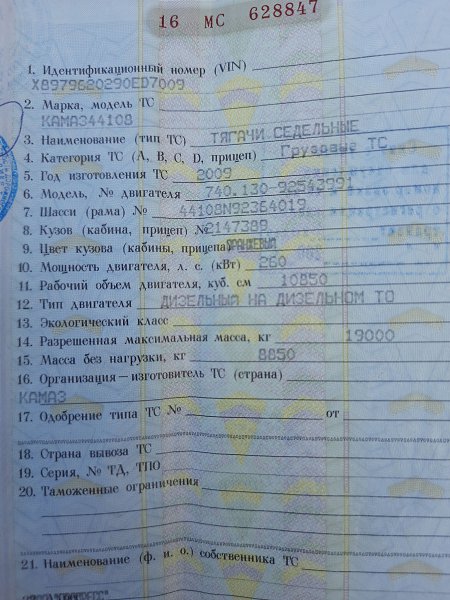 16 МС 628847
1. Идентификационный номер (VIN)
X8979620290ED7009
2. Марка, модель ТС
КАМАЗ44108
3. Наименование (тип ТС) ТЯГАЧИ СЕДЕЛЬНЫЕ
4. Категория ТС (А, В, С, D, прицеп) Грузовые ТС
5. Год изготовления ТС 2009
6. Модель, № двигателя 740.130-92543991
7. Шасси (рама) № 44108N92364019
8. Кузов (кабина, прицеп) № 2147389
9. Цвет кузова (кабины, прицепа) ОРАНЖЕВЫЙ
10. Мощность двигателя, л. с. (кВт) 260
11. Рабочий объем двигателя, куб. см 10850
12. Тип двигателя ДИЗЕЛЬНЫЙ НА ДИЗЕЛЬНОМ ТО
13. Экологический класс
14. Разрешенная максимальная масса, кг 19000
15. Масса без нагрузки, кг 8850
16. Организация — изготовитель ТС (страна)
КАМАЗ
17. Одобрение типа ТС № от
18. Страна вывоза ТС
19. Серия, № ТД, ТПО
20. Таможенные ограничения
21. Наименование (ф. и. о.) собственника ТС